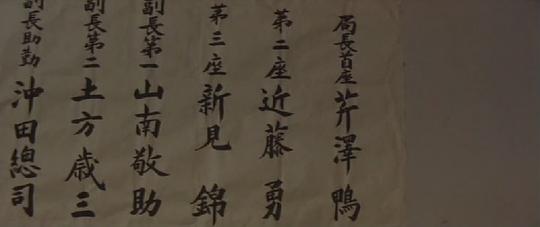 局長首座 芹澤 鴨
第二座 近藤 勇
第三座 新見 錦
副長第一 山南敬助
副長第二 土方歳三
副長助勤 沖田總司